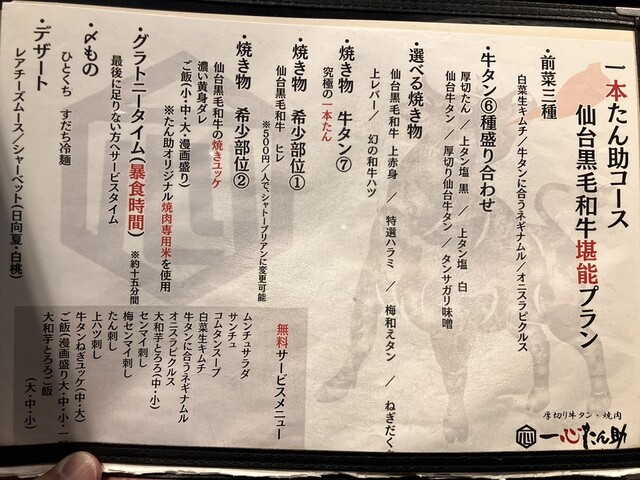 一本たん助コース
仙台黒毛和牛堪能プラン
・前菜三種
白菜生キムチ／牛タンに合うネギナムル／オニスラピクルス
・牛タン⑥種盛り合わせ
厚切たん ／ 上タン塩 黒 ／ 上タン塩 白
仙台牛タン ／ 厚切り仙台牛タン ／ タンサガリ味噌
・選べる焼き物
仙台黒毛和牛 上赤身 ／ 特選ハラミ ／ 梅和えタン ／ ねぎだく
上レバー／ 幻の和牛ハツ
・焼き物 牛タン⑦
究極の一本たん
・焼き物 希少部位①
仙台黒毛和牛 ヒレ
※５００円／人で、シャトーブリアンに変更可能
・焼き物 希少部位②
仙台黒毛和牛の焼きユッケ
濃い黄身ダレ
ご飯(小・中・大・漫画盛り)
※たん助オリジナル焼肉専用米を使用
・グラトニータイム(暴食時間) ※約十五分間
最後に足りない方へサービスタイム
・〆もの
ひとくち すだち冷麺
・デザート
レアチーズムース／シャーベット(日向夏・白桃)
無料サービスメニュー
ムンチュサラダ
サンチュ
コムタンスープ
白菜生キムチ
牛タンに合うネギナムル
オニスラピクルス
大和芋とろろ(中・小)
センマイ刺し
梅センマイ刺し
たん刺し
上ハツ刺し
牛タンねぎユッケ(中・大)
ご飯(漫画盛り大・中・小・一
大和芋とろろご飯
(大・中・小)
厚切り牛タン・焼肉
一心たん助